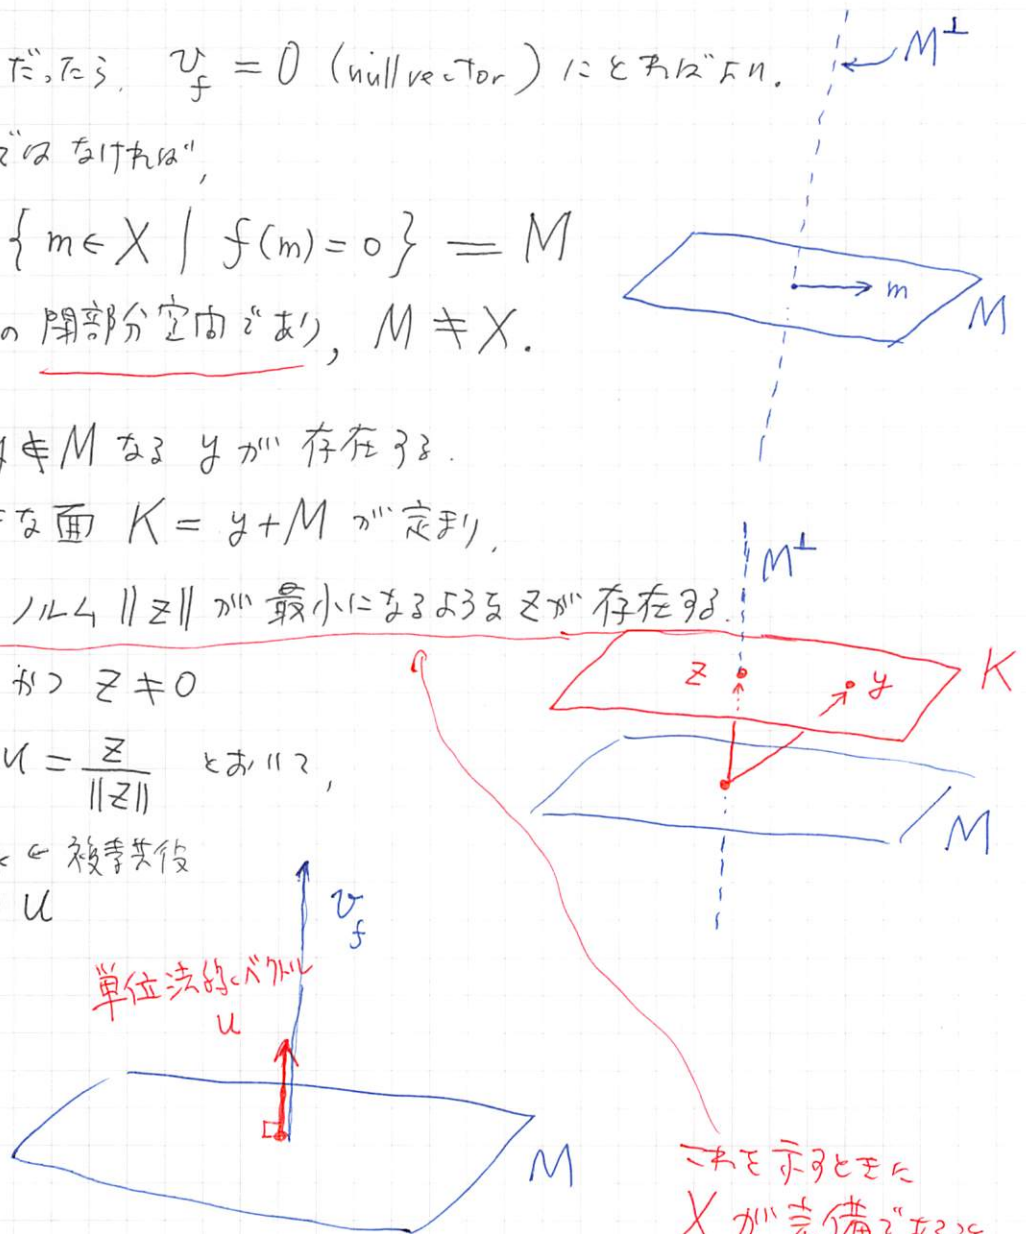 だったら, v_f = 0 (null vector) にとればよい.
M⊥
ではなければ,
{ m ∈ X | f(m) = 0 } = M
m
M
の 閉部分空間であり, M ≠ X.
y ∉ M なる y が 存在する.
な面 K = y + M が 定まり,
M⊥
ノルム ‖z‖ が 最小になるような z が 存在する.
K
z
y
かつ z ≠ 0
u = z / ‖z‖ とおいて,
M
← 複素共役
u
v_f
単位法線ベクトル
u
M
これを示すときに
X が 完備である